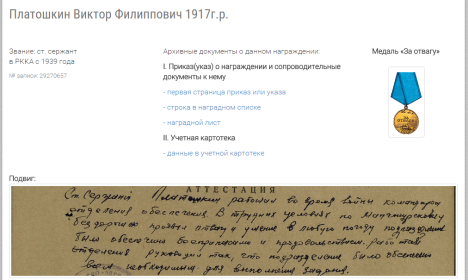 Платошкин Виктор Филиппович 1917г.р.
Звание: ст. сержант
в РККА с 1939 года
№ записи: 29270657
Архивные документы о данном награждении:
I. Приказ(указ) о награждении и сопроводительные
документы к нему
- первая страница приказ или указа
- строка в наградном списке
- наградной лист
II. Учетная картотека
- данные в учетной картотеке
Медаль «За отвагу»
Подвиг:
АТТЕСТАЦИЯ
Ст. Сержант Платошкин работая во время войны командиром
отделения обеспечения. В трудных условиях по
бездорожью проявил отвагу и умение в любую погоду подразделение
было обеспечено боеприпасами и продовольствием. Работой
отделения руководил так, что подразделение было обеспечено
всем необходимым для выполнения задания.